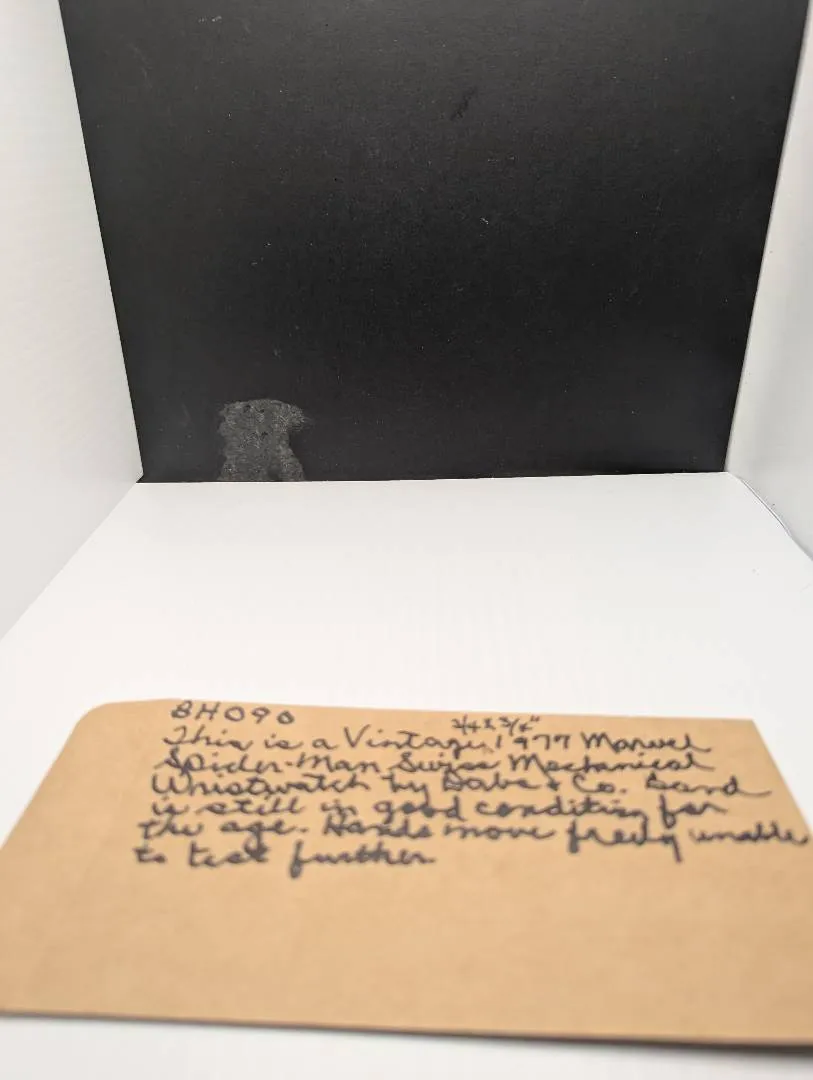 8H090
3/4 x 3/4"
This is a Vintage, 1977 Marvel
Spider-Man Swiss Mechanical
Whistwatch by Dabs & Co. Band
is still in good condition for
the age. Hands move freely unable
to test further.